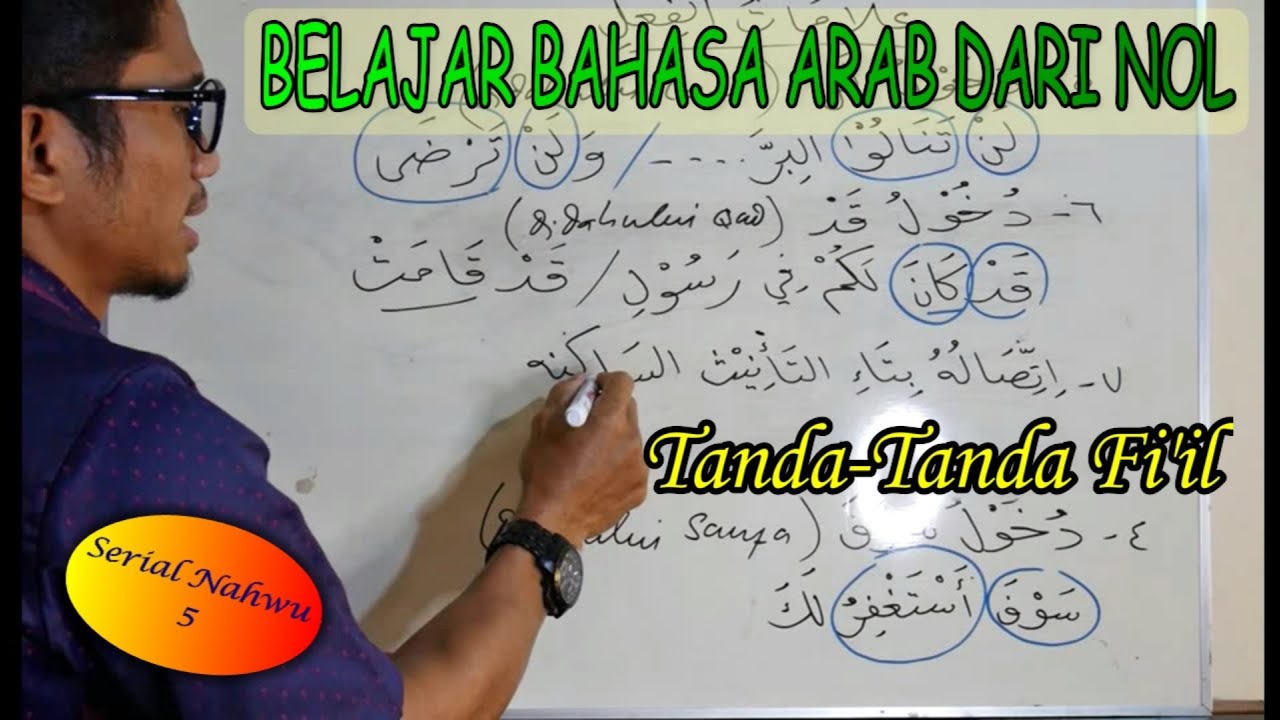 علامات الفعل
BELAJAR BAHASA ARAB DARI NOL
لَنْ تَنَالُوْا البِرَّ .... / وَلَنْ تَرْضَى
٦- دُخُوْلُ قَدْ (didahului Qad)
قَدْ كَانَ لَكُمْ فِي رَسُوْلِ / قَدْ قَامَتْ
٧- اِتِّصَالُهُ بِتَاءِ التَأْنِيْثِ السَاكِنه
Tanda-Tanda Fi'il
٤- دُخُوْلُ (saufa)
سَوْفَ أَسْتَغْفِرُ لَكَ
Serial Nahwu
5